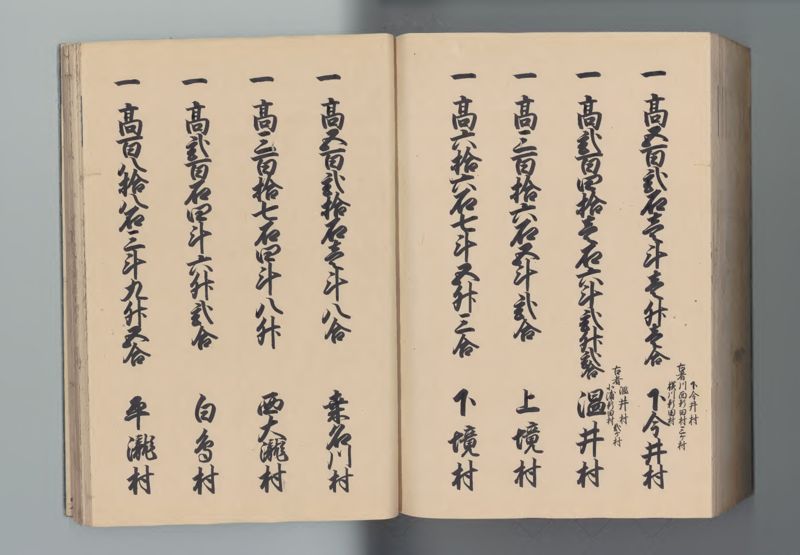 一 高五百弐石壱斗壱升壱合 下今井村
下今井村
古者川西新田村三ケ村
横川新田村
一 高弐百四拾壱石六斗弐升弐合 温井村
古者温井村
小滝新田村
弐ケ村
一 高三百拾六石五斗弐合 上境村
一 高六拾六石七斗五升三合 下境村
一 高五百弐拾石壱斗八合 桑名川村
一 高三百拾七石四斗八升 西大滝村
一 高弐百石四斗六升弐合 白鳥村
一 高百八拾八石三斗九升五合 平滝村